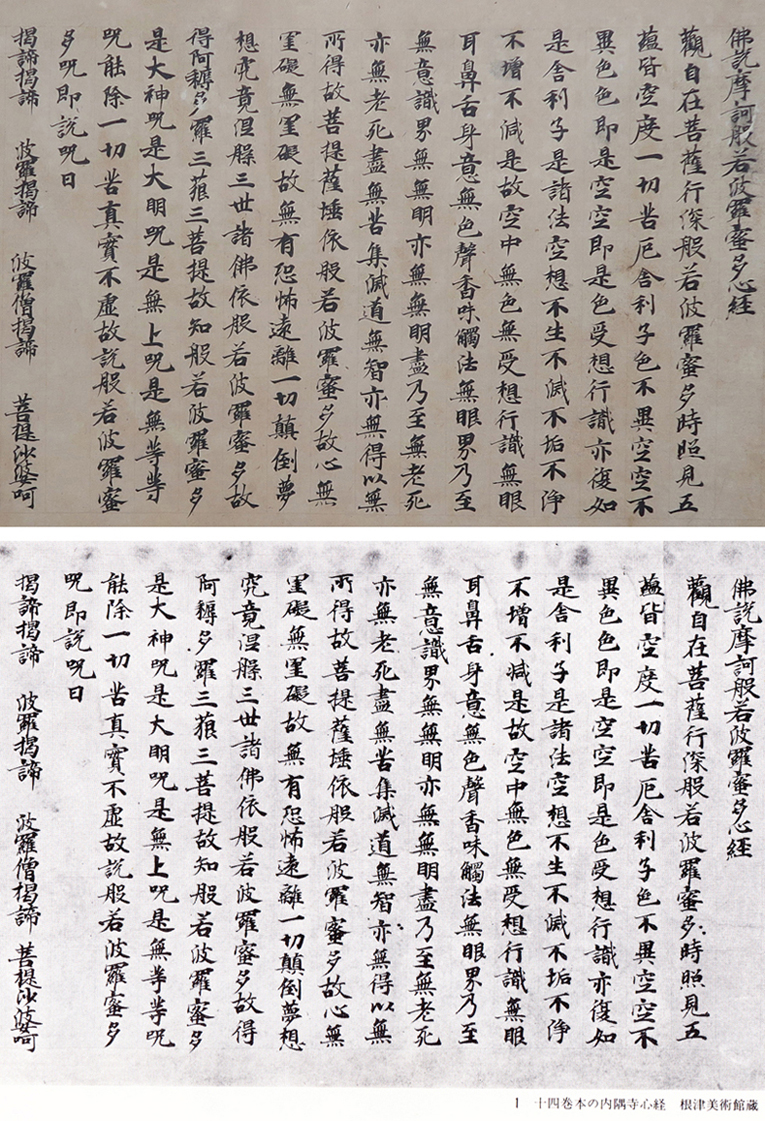 佛説摩訶般若波羅蜜多心経
觀自在菩薩行深般若波羅蜜多時照見五
蘊皆空度一切苦厄舎利子色不異空空不
異色色即是空空即是色受想行識亦復如
是舎利子是諸法空想不生不滅不垢不浄
不増不減是故空中無色無受想行識無眼
耳鼻舌身意無色聲香味觸法無眼界乃至
無意識界無無明亦無無明盡乃至無老死
亦無老死盡無苦集滅道無智亦無得以無
所得故菩提薩埵依般若波羅蜜多故心無
罣礙無罣礙故無有恐怖遠離一切顛倒夢
想究竟涅槃三世諸佛依般若波羅蜜多故
得阿耨多羅三藐三菩提故知般若波羅蜜多
是大神呪是大明呪是無上呪是無等等
呪能除一切苦真實不虚故説般若波羅蜜
多呪即説呪曰
揭諦揭諦 波羅揭諦 波羅僧揭諦 菩提沙婆呵
佛説摩訶般若波羅蜜多心経
觀自在菩薩行深般若波羅蜜多時照見五
蘊皆空度一切苦厄舎利子色不異空空不
異色色即是空空即是色受想行識亦復如
是舎利子是諸法空想不生不滅不垢不浄
不増不減是故空中無色無受想行識無眼
耳鼻舌身意無色聲香味觸法無眼界乃至
無意識界無無明亦無無明盡乃至無老死
亦無老死盡無苦集滅道無智亦無得以無
所得故菩提薩埵依般若波羅蜜多故心無
罣礙無罣礙故無有恐怖遠離一切顛倒夢想
究竟涅槃三世諸佛依般若波羅蜜多故得
阿耨多羅三藐三菩提故知般若波羅蜜多
是大神呪是大明呪是無上呪是無等等呪
能除一切苦真實不虚故説般若波羅蜜多
呪即説呪曰
揭諦揭諦 波羅揭諦 波羅僧揭諦 菩提沙婆呵
1 十四巻本の内隅寺心経 根津美術館蔵